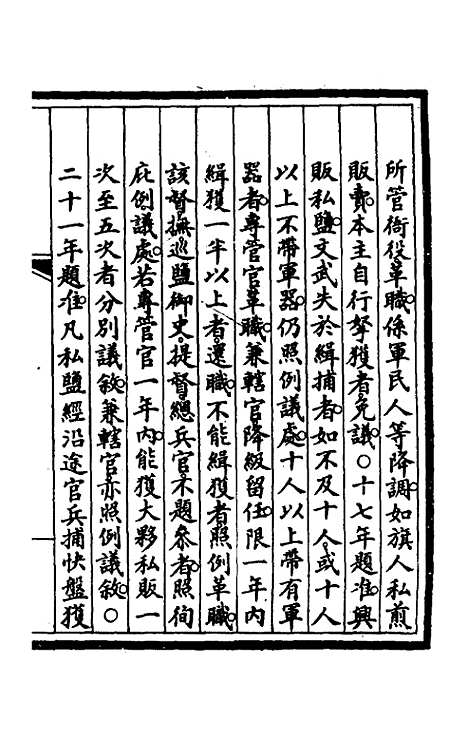 所管衙役革職係軍民人等降調如旗人私煎
販賣本主自行拏獲者免議○十七年題准興
販私鹽文武失於緝捕者如不及十人或十人
以上不帶軍器仍照例議處十人以上帶有軍
器者專管官革職兼轄官降級留任限一年內
緝獲一半以上者還職不能緝獲者照例革職
該督撫巡鹽御史提督總兵官不題參者照徇
庇例議處若專管官一年內能獲大夥私販一
次至五次者分別議敘兼轄官亦照例議敘○
二十一年題准凡私鹽經沿途官兵捕快盤獲